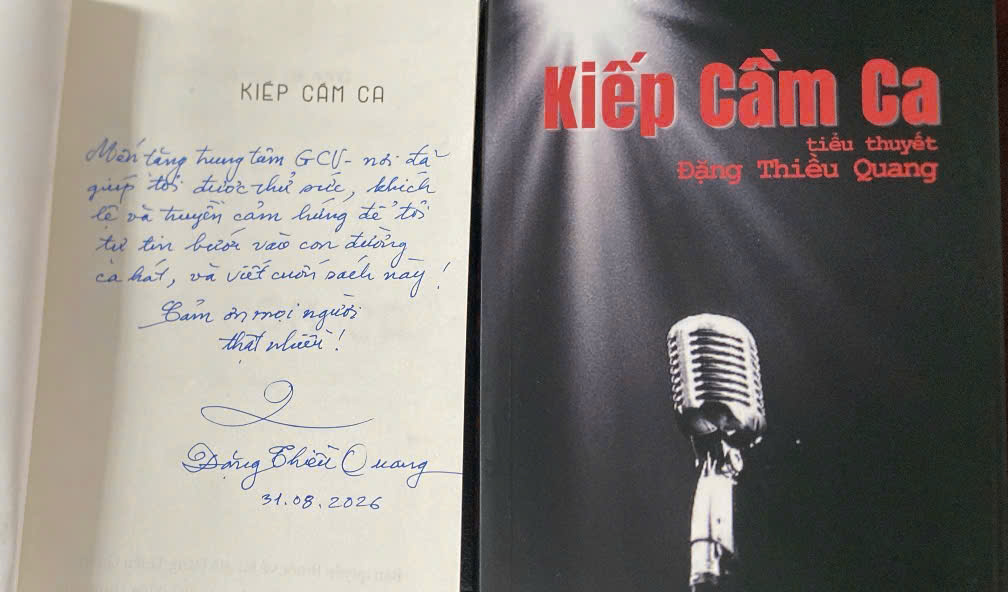 KIẾP CẦM CA
Mến tặng trung tâm GCV - nơi đã
giúp tôi được thử sức, khích
lệ và truyền cảm hứng để tôi
tự tin bước vào con đường
ca hát, và viết cuốn sách này!
Cảm ơn mọi người
thật nhiều!
Đặng Thiều Quang
31.08.2026
Kiếp Cầm Ca
tiểu thuyết
Đặng Thiều Quang